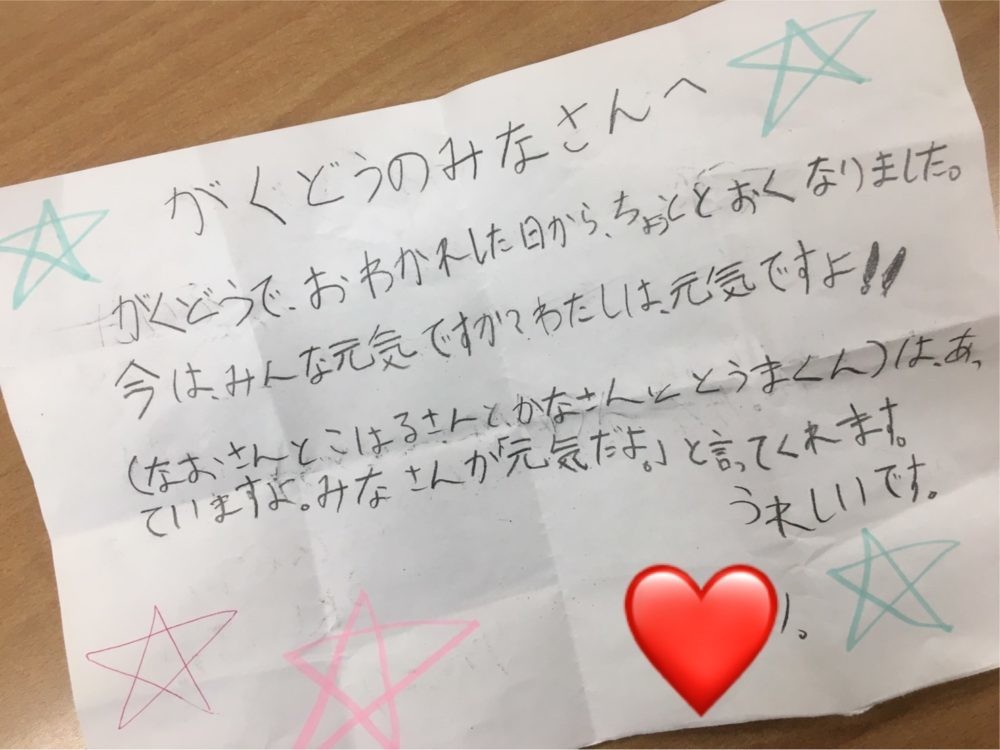 がくどうのみなさんへ
がくどうで、おわかれした日から、ちょっととおくなりました。
今は、みんな元気ですか?わたしは、元気ですよ!!
(なおさんと、こはるさんと、かなさんと とうまくん)は、あっ
ていますよ。みなさんが「元気だよ。」と言ってくれます。
うれしいです。